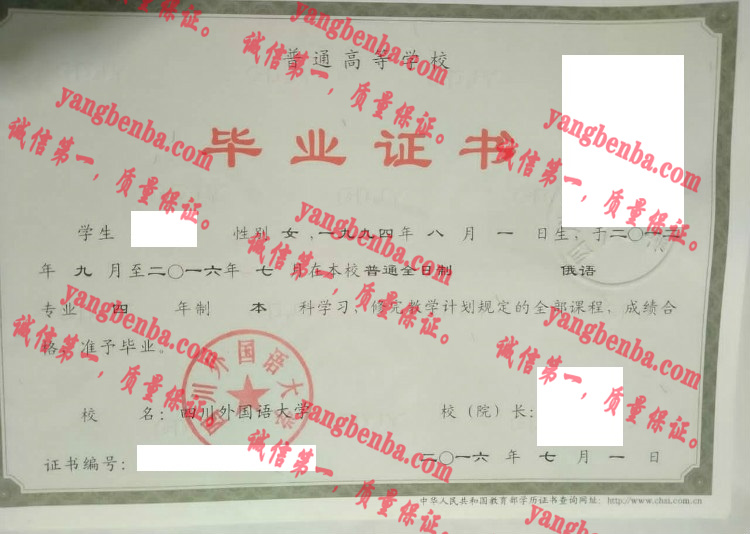 普通高等学校
毕业证书
学生 性别 女,一九九四年 八 月 一 日生,于二〇一二
年 九 月至二〇一六年 七 月在本校普通全日制 俄语
专业 四 年制 本 科学习,修完教学计划规定的全部课程,成绩合
格,准予毕业。
四川外国语大学
校 名:四川外国语大学 校(院)长:
证书编号: 二〇一六 年 七 月 一 日
中华人民共和国教育部学历证书查询网址: http://www.chsi.com.cn
yangbenba.com
诚信第一,质量保证。
yangbenba.com
诚信第一,质量保证。
yangbenba.com
诚信第一,质量保证。
yangbenba.com
诚信第一,质量保证。
yangbenba.com
诚信第一,质量保证。
yangbenba.com
诚信第一,质量保证。
yangbenba.com
诚信第一,质量保证。
yangbenba.com
诚信第一,质量保证。
yangbenba.com